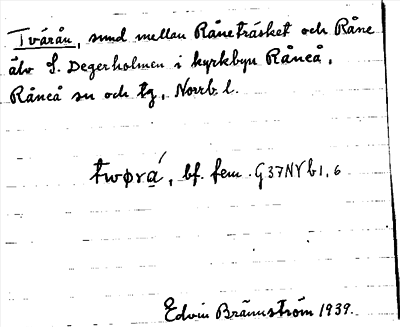 Tvärån, sund mellan Råneträsket och Råne
älv S. Degerholmen i kyrkbyn Råneå,
Råneå sn och tg, Norrb. l.
twørá̱, bf. fem. G37NVb1,6
Edvin Brännström 1939.